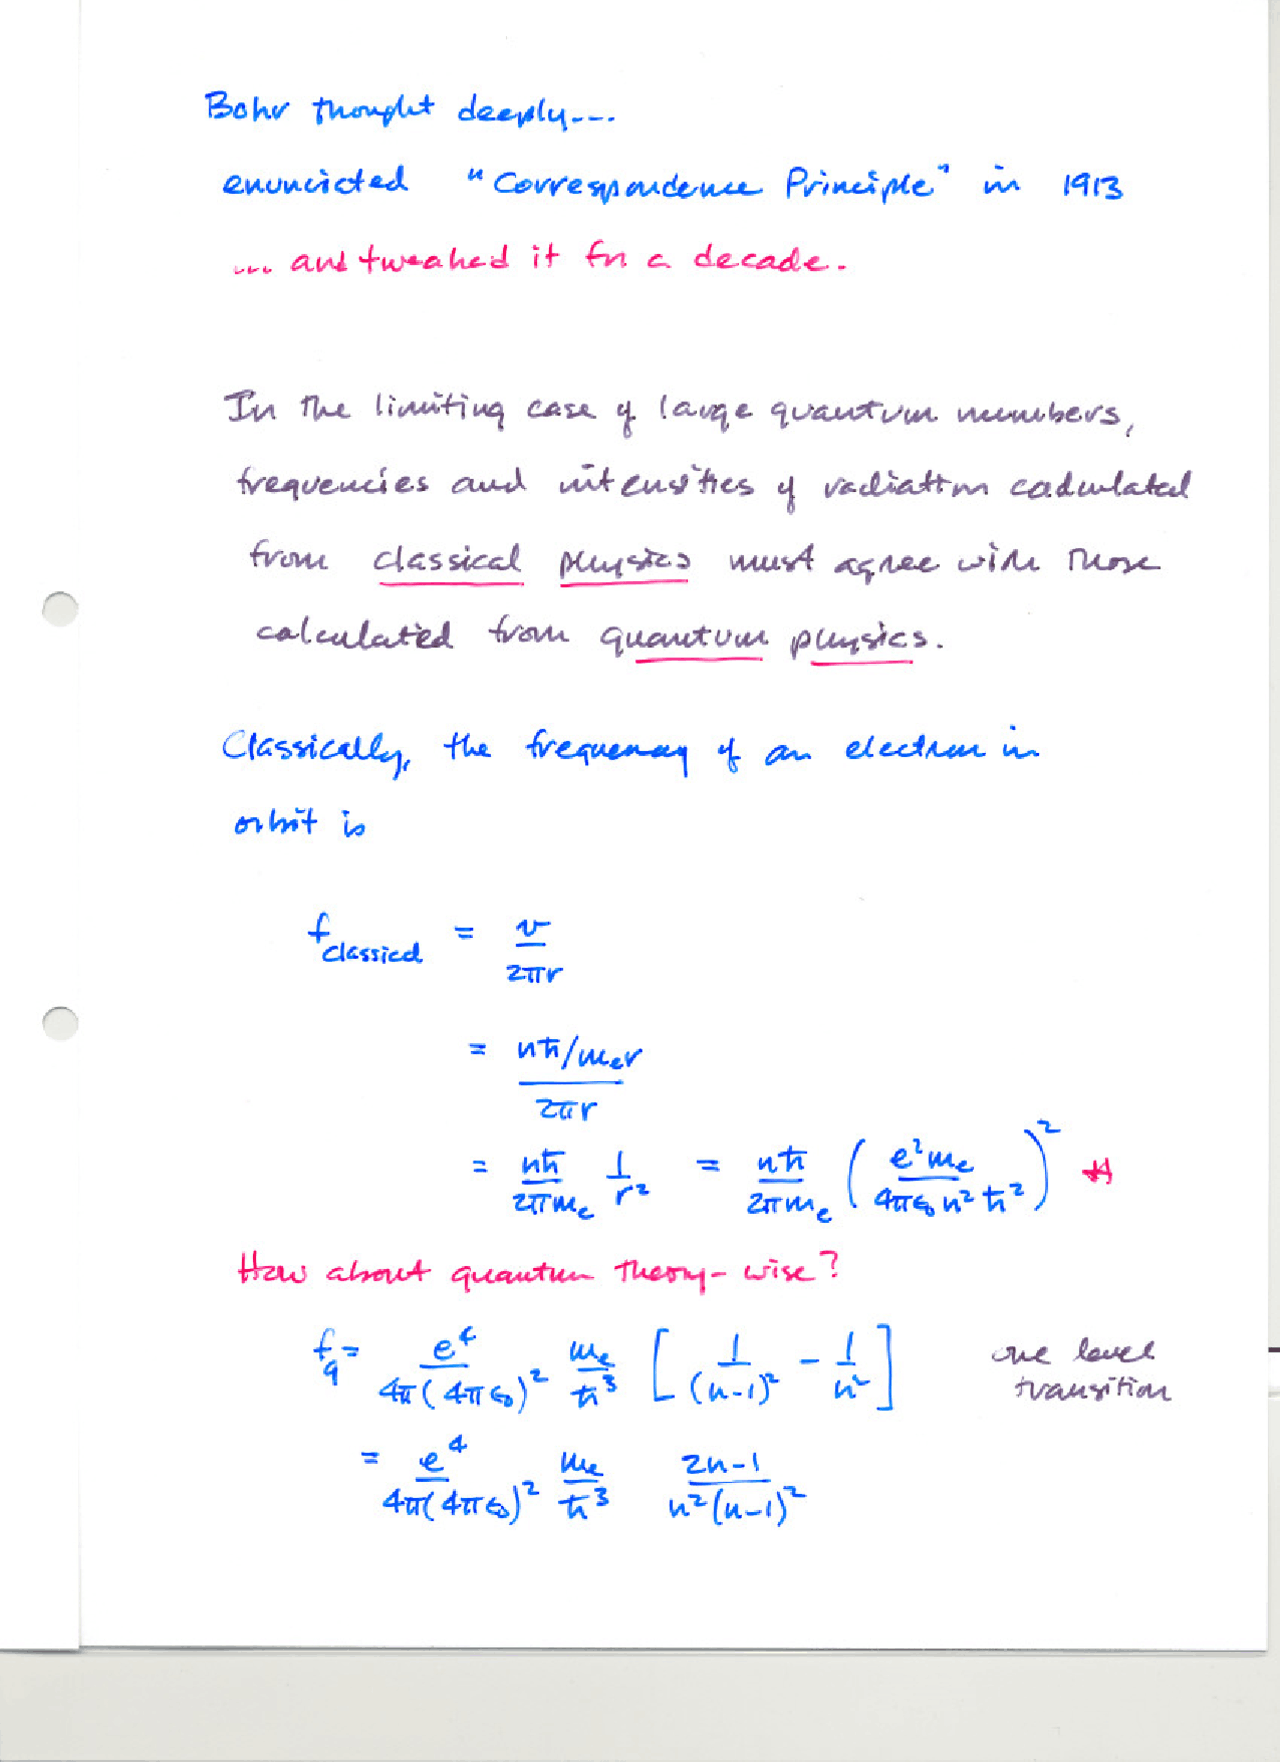 Bohr thought deeply...
enunciated "Correspondence Principle" in 1913
... and tweaked it for a decade.
In the limiting case of large quantum numbers,
frequencies and intensities of radiation calculated
from classical physics must agree with those
calculated from quantum physics.
Classically, the frequency of an electron in
orbit is
f_classical = v / 2πr
= (nħ/m_e r) / 2πr
= nħ/2πm_e 1/r² = nħ/2πm_e (e²m_e / 4πε₀n²ħ²)² *
How about quantum theory-wise?
f_q = e⁴/4π(4πε₀)² m_e/ħ³ [1/(n-1)² - 1/n²] one level
transition
= e⁴/4π(4πε₀)² m_e/ħ³ 2n-1/n²(n-1)²